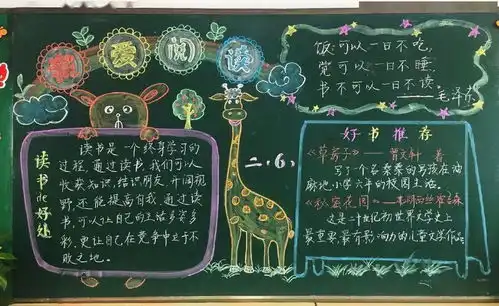 我爱阅读
饭可以一日不吃,
觉可以一日不睡,
书不可以一日不读。
——毛泽东
读书de好处
读书是一个终身学习的
过程,通过读书,我们可以
收获知识,结识朋友,开阔视
野,还能提高自我,通过读
书,可以让自己的生活多姿多
彩,更让自己在竞争中立于不
败之地。
二.(6)
好书推荐
《草房子》——曹文轩 著
写了个名桑桑的男孩在油
麻地小学六年的校园生活。
《秘密花园》——
这是二十世纪初世界文学史上
最重要最有影响力的儿童文学作品